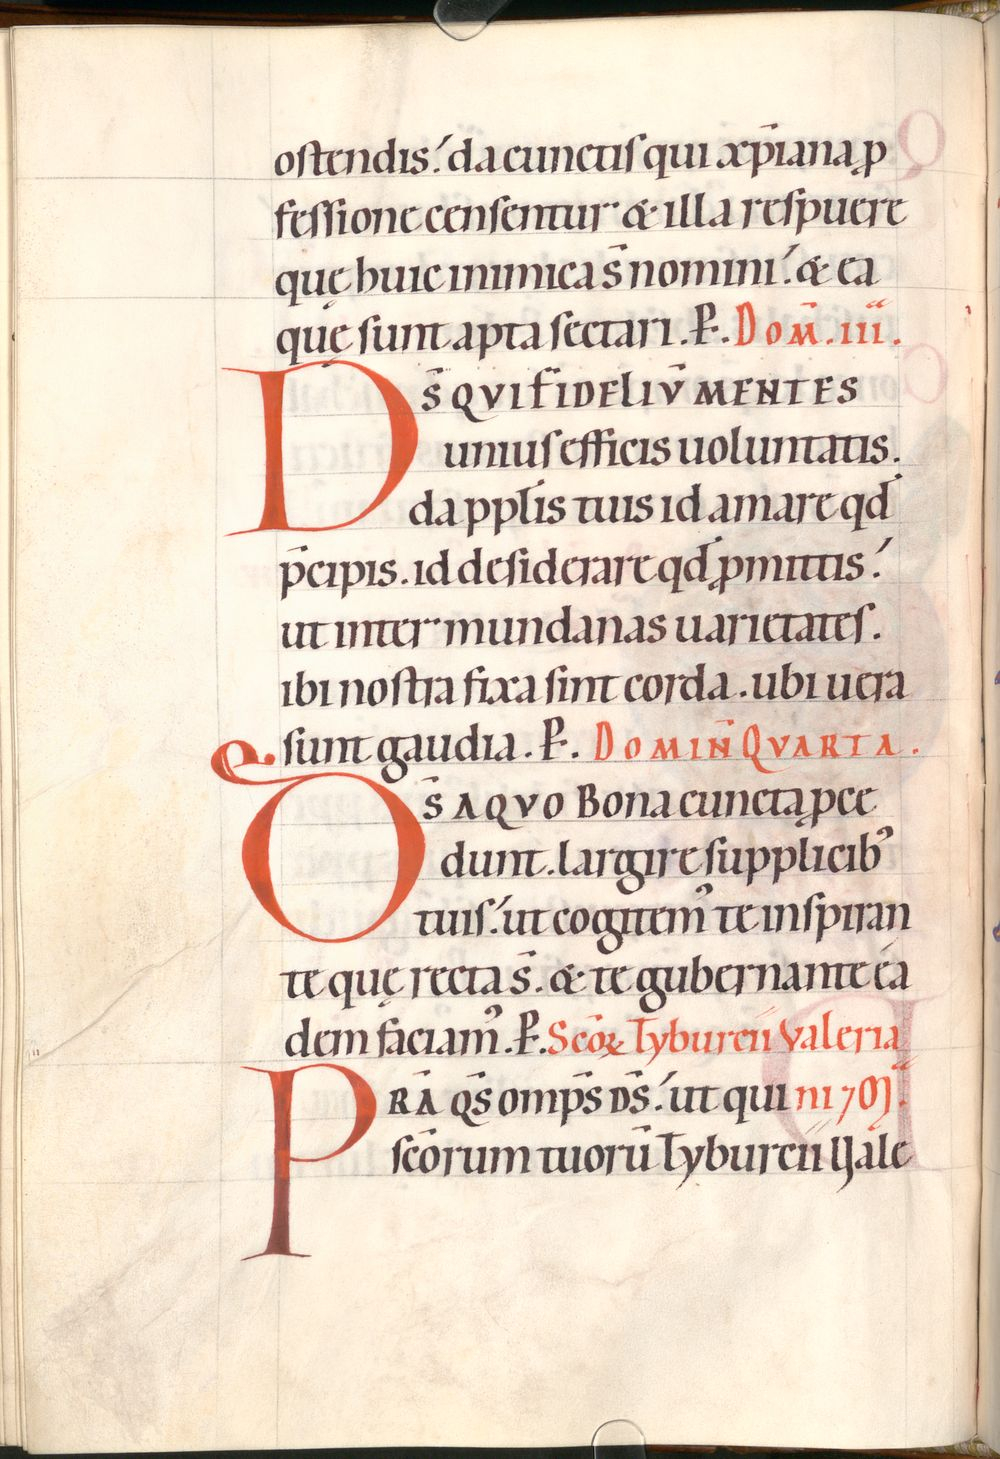 ostendis. da cunctis qui xp̄iana ꝓ
fessione censentur & illa respuere
quę huic inimica s̄ nomini. & ea
quę sunt apta sectari. P̄. Dom̄. iii.
Ds̄ qui fideliū mentes
unius efficis uoluntatis.
da pplīs tuis id amare qd̄
p̄cipis. id desiderare qd̄ ꝓmittis.
ut inter mundanas uarietates.
ibi nostra fixa sint corda. ubi uera
sunt gaudia. P̄. Domin̄ Quarta.
Ds̄ a quo bona cuncta ꝓce
dunt. largire supplicibꝰ
tuis. ut cogitemꝰ te inspiran
te quę recta s̄. & te gubernante ea
dem faciamꝰ. P̄. Scōꝝ Tyburcii Valeria
Prā qs̄ omp̄s ds̄. ut qui ni 7 M̄.
scōrum tuorū Tyburcii Vale